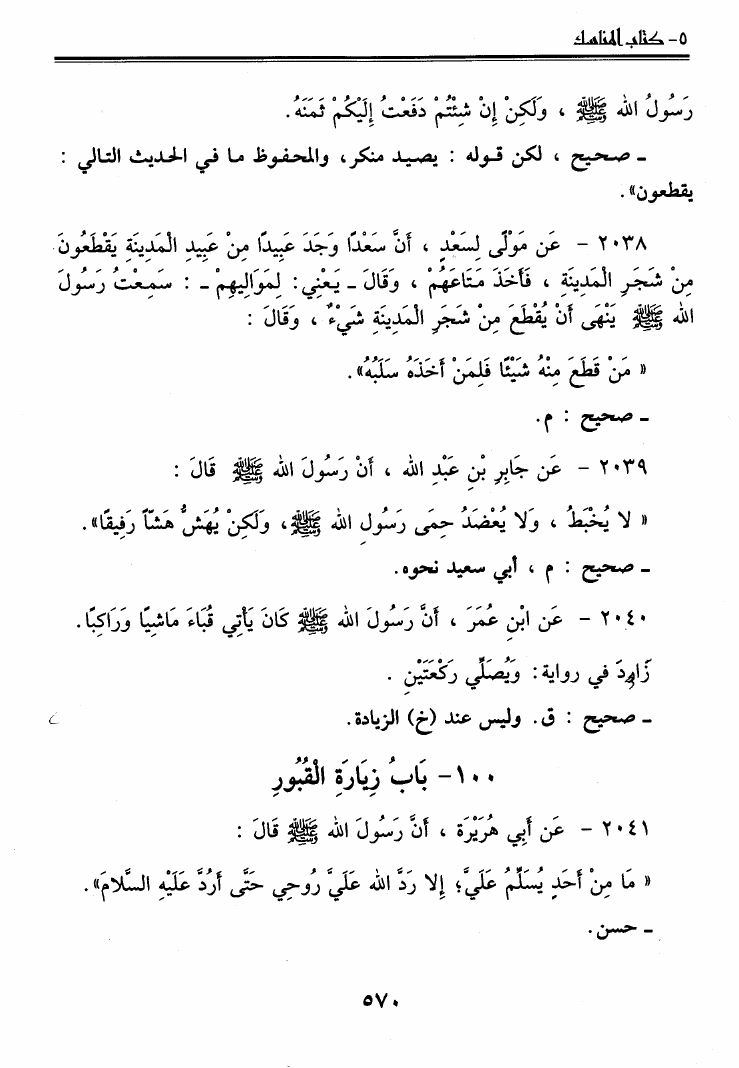 ٥- كتاب المناسك
رَسُولُ الله ﷺ ، وَلَكِنْ إِنْ شِئْتُمْ دَفَعْتُ إِلَيْكُمْ ثَمَنَهُ.
ـ صحيح ، لكن قوله : يصيد منكر، والمحفوظ ما في الحديث التالي :
يقطعون».
٢٠٣٨ - عَن مَوْلًى لِسَعْدٍ ، أَنَّ سَعْدًا وَجَدَ عَبِيدًا مِنْ عَبِيدِ الْمَدِينَةِ يَقْطَعُونَ
مِنْ شَجَرِ الْمَدِينَةِ ، فَأَخَذَ مَتَاعَهُمْ ، وَقَالَ ـ يَعْنِي: لِمَوَالِيهِمْ ـ : سَمِعْتُ رَسُولَ
الله ﷺ يَنْهَى أَنْ يُقْطَعَ مِنْ شَجَرِ الْمَدِينَةِ شَيْءٌ ، وَقَالَ :
« مَنْ قَطَعَ مِنْهُ شَيْئًا فَلِمَنْ أَخَذَهُ سَلَبُهُ».
ـ صحيح : م.
٢٠٣٩ - عَن جَابِرِ بْنِ عَبْدِ الله ، أَنْ رَسُولَ الله ﷺ قَالَ :
« لا يُخْبَطُ ، وَلا يُعْضَدُ حِمَى رَسُولِ الله ﷺ، وَلَكِنْ يُهَشُّ هَشّاً رَفِيقًا».
ـ صحيح : م ، أبي سعيد نحوه.
٢٠٤٠ - عَن ابْنِ عُمَرَ ، أَنَّ رَسُولَ الله ﷺ كَانَ يَأْتِي قُبَاءَ مَاشِيًا وَرَاكِبًا.
في رواية: وَيُصَلِّي رَكْعَتَيْنِ .
ـ صحيح : ق. وليس عند (خ) الزيادة.
١٠٠- بَابُ زِيَارَةِ الْقُبُورِ
٢٠٤١ - عَن أَبِي هُرَيْرَةَ ، أَنَّ رَسُولَ الله ﷺ قَالَ :
« مَا مِنْ أَحَدٍ يُسَلِّمُ عَلَيَّ؛ إِلا رَدَّ الله عَلَيَّ رُوحِي حَتَّى أَرُدَّ عَلَيْهِ السَّلامَ».
ـ حسن.
٥٧٠